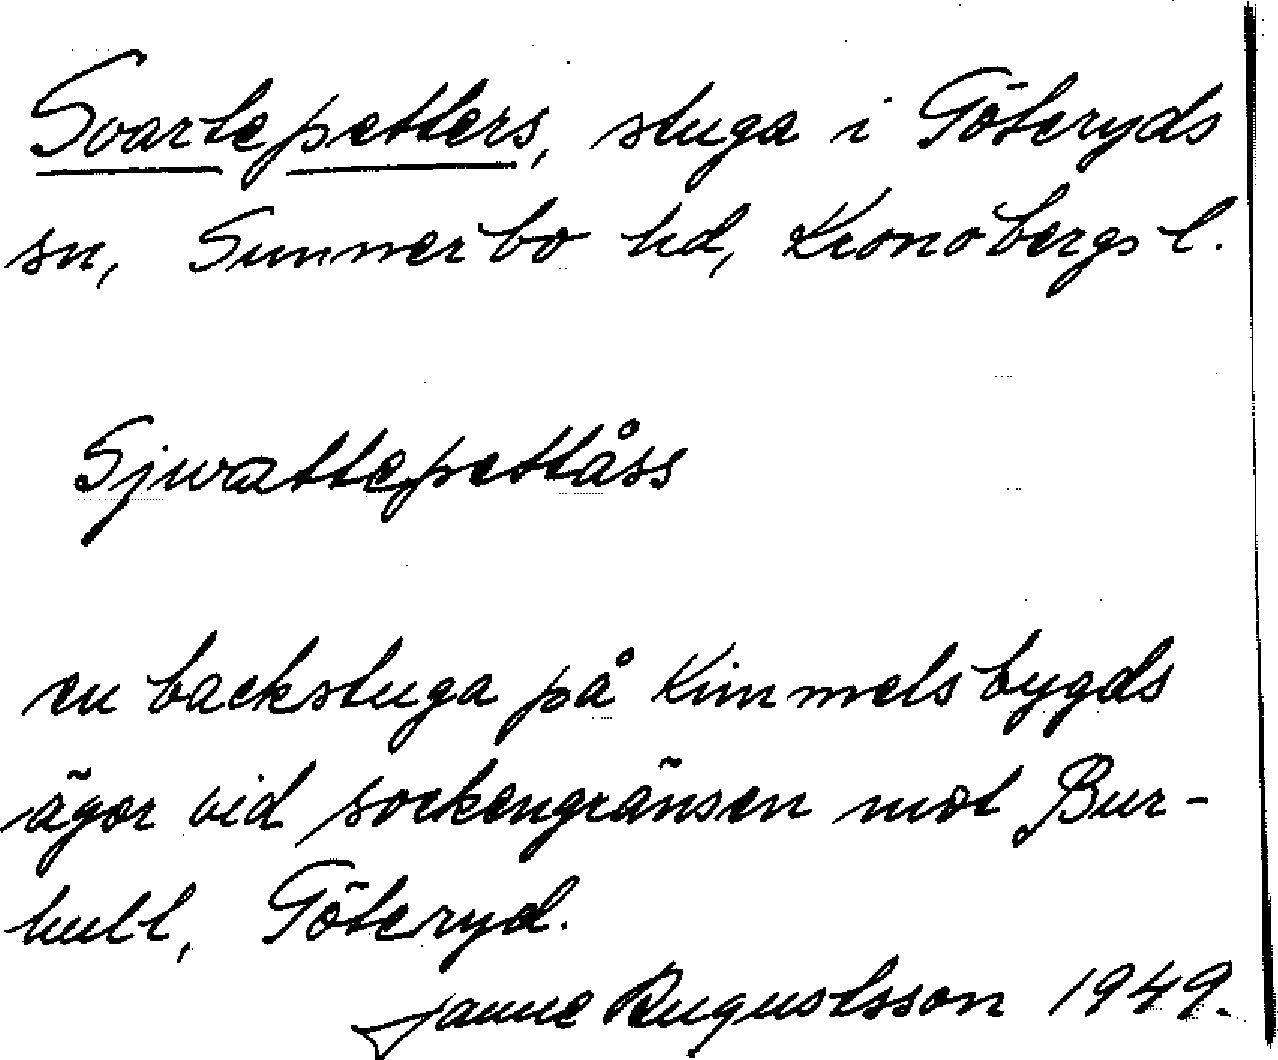 Svartepetters, stuga i Göteryds
sn, Sunnerbo hd, Kronobergs l.
Sjwattepettåss
en backstuga på Kimmelsbygds
ägor vid sockengränsen mot Bur-
hult, Göteryd.
Janne Augustsson 1949.